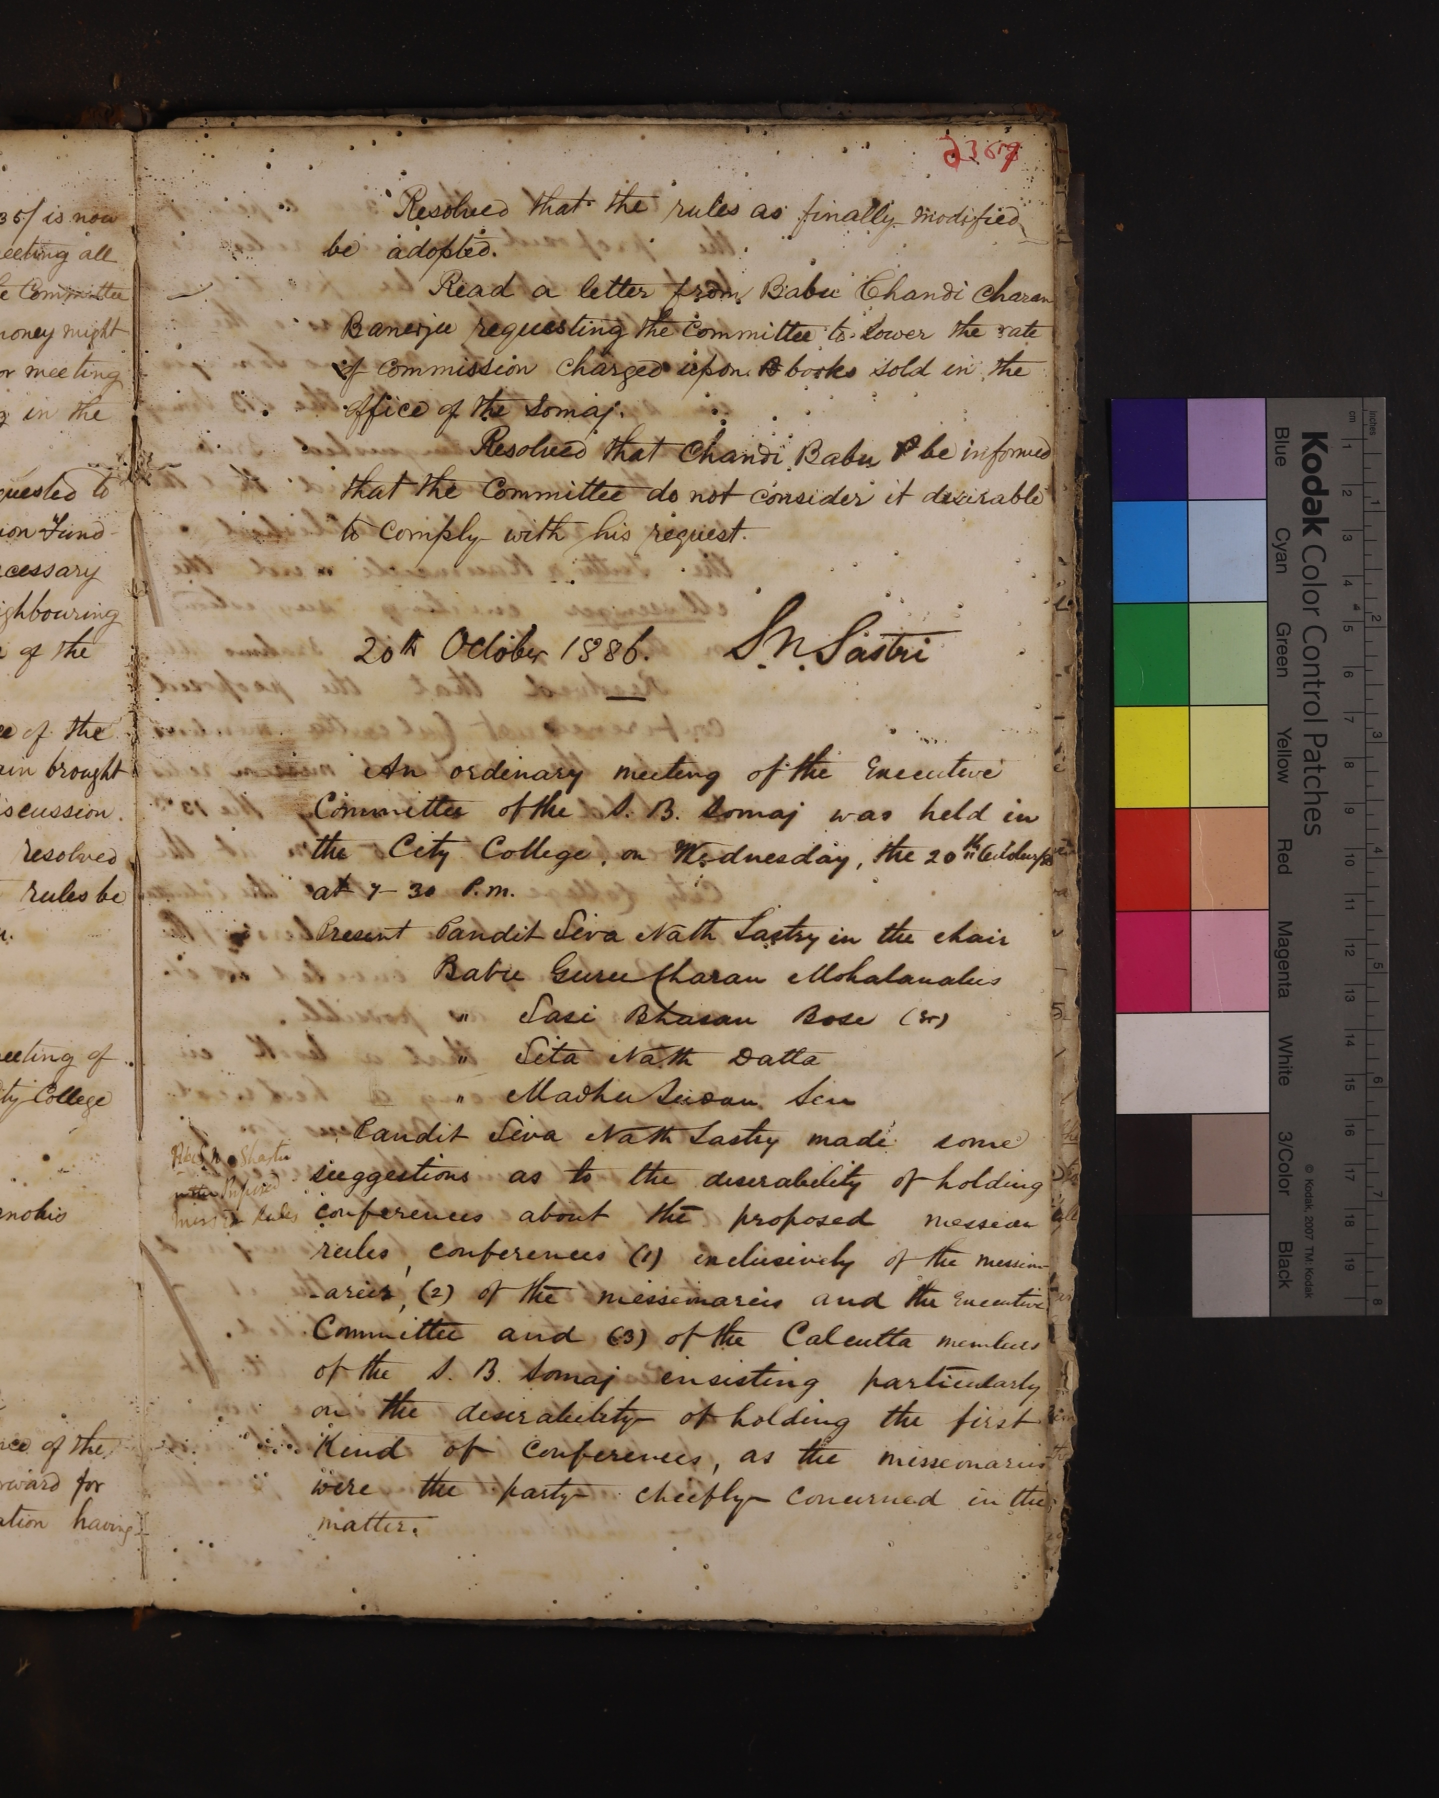 35/ is now
eeting all
e Committee
money might
or meeting
in the
quested to
ion Fund
cessary
ighbouring
of the
ce of the
ain brought
iscussion.
resolved
rules be
eeting of
ity College
nce of the
rward for
ation having
Resolved that the rules as finally modified
be adopted.
Read a letter from Babu Chandi Charan
Banerjee requesting the Committee to lower the rate
of commission charged upon books sold in the
office of the Somaj.
Resolved that Chandi Babu be informed
that the Committee do not consider it desirable
to comply with his request.
20th October 1886. S. N. Sastri
An ordinary meeting of the Executive
Committee of the S. B. Somaj was held in
the City College, on Wednesday, the 20th
at 7-30 P.m.
Present Pandit Siva Nath Sastry in the chair
Babu Guru Charan Mohalanabis
" Sasi Bhusan Bose (Sr)
" Sita Nath Datta
" Madhu Sudan Sen
Pandit Siva Nath Sastry made some
suggestions as to the desirability of holding
conferences about the proposed mission
rules, conferences (1) exclusively of the mission-
-aries, (2) of the missionaries and the Executive
Committee and (3) of the Calcutta members
of the S. B. Somaj insisting particularly
on the desirability of holding the first
Kind of conferences, as the missionaries
were the party chiefly concerned in the
matter.
Kodak Color Control Patches
Blue Cyan Green Yellow Red Magenta White 3/Color Black
© Kodak, 2007 TM: Kodak
inches 1 2 3 4 5 6 7 8
cm 1 2 3 4 5 6 7 8 9 10 11 12 13 14 15 16 17 18 19